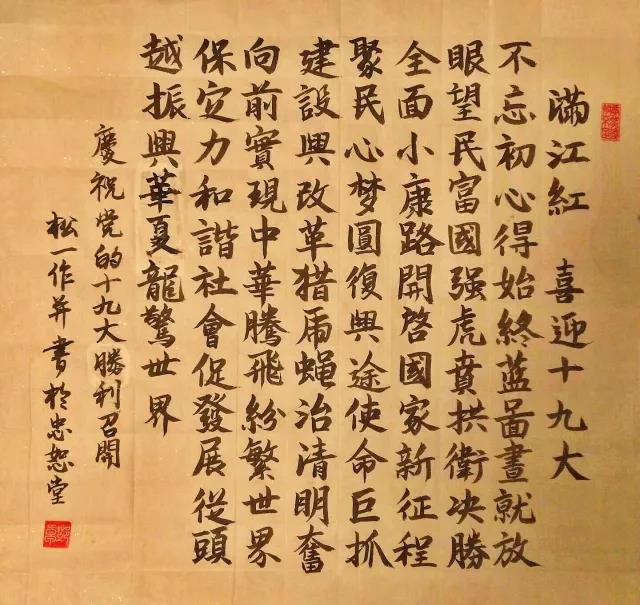 滿江紅 喜迎十九大
不忘初心得始終蓝啚畫就放
眼望民富國强虎賁拱衛决勝
全面小康路開啓國家新征程
聚民心梦圓復興途使命巨抓
建設興改革猎虎蝇治清明奮
向前實現中華騰飛紛繁世界
保定力和諧社會促發展從頭
越振興華夏龍驚世界
慶祝党的十九大勝利召開
松一作并書於忠恕堂